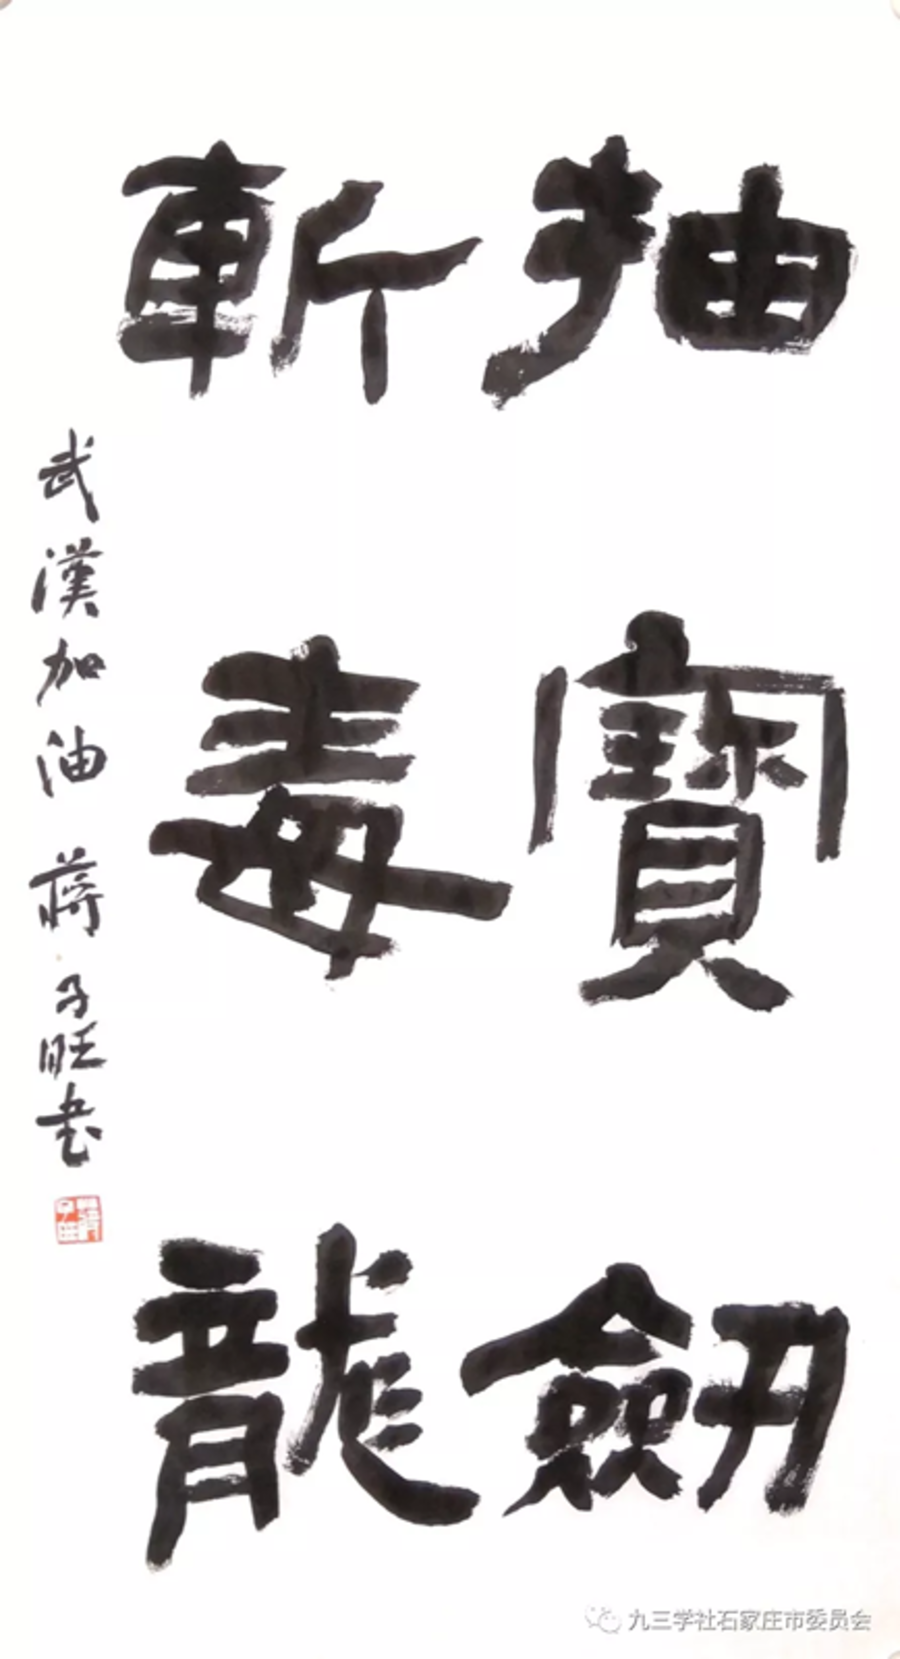 抽寶劔
斬毒龍
武漢加油 蔣子旺书
九三学社石家庄市委员会